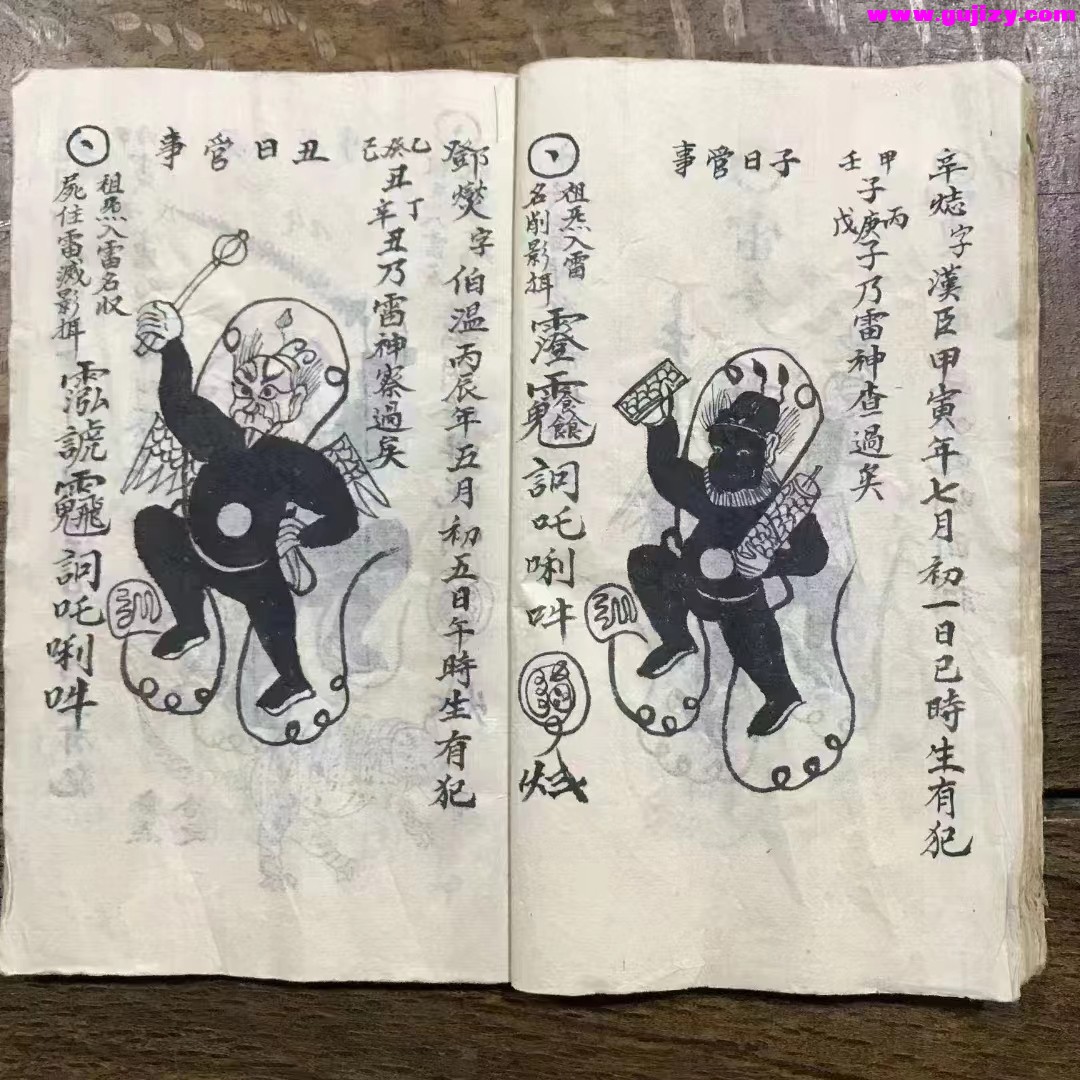 www.gujizy.com
辛㷖字漢臣甲寅年七月初一日巳時生有犯
甲丙
壬子庚子乃雷神查過矣
戊
子日管事
祖炁入雷
名削影捱
訶吒唎吽
鄧燮字伯温丙辰年五月初五日午時生有犯
乙丁
癸丑辛丑乃雷神察過矣
己
丑日管事
祖炁入雷名收
屍住雷滅影捱
訶吒唎吽